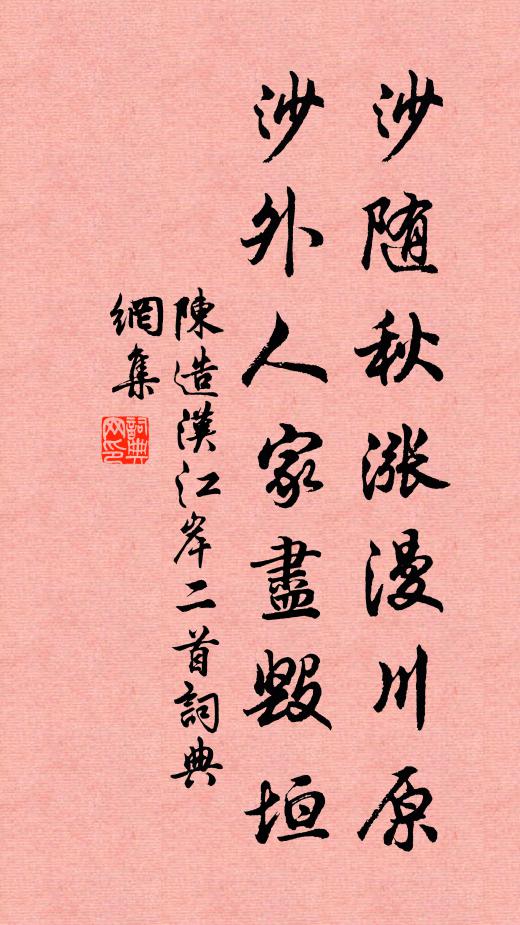 沙随秋漲漫川原
沙外人家盡毀垣
陳造漢江岸二首詞典
網集
詞典
网印